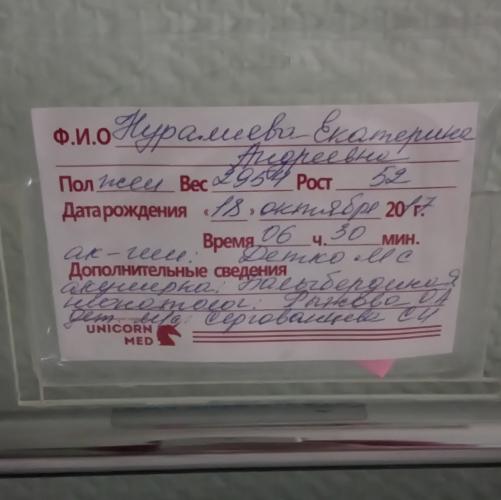 Ф.И.О Нуралиева Екатерина
Андреевна
Пол жен Вес 2954 Рост 52
Дата рождения «18» октября 2017 г.
Время 06 ч. 30 мин.
ак-гин: Детко МС
Дополнительные сведения
акушерка:
неонатолог: Рыжова ОА
дет. м/с: СИ
UNICORN
MED